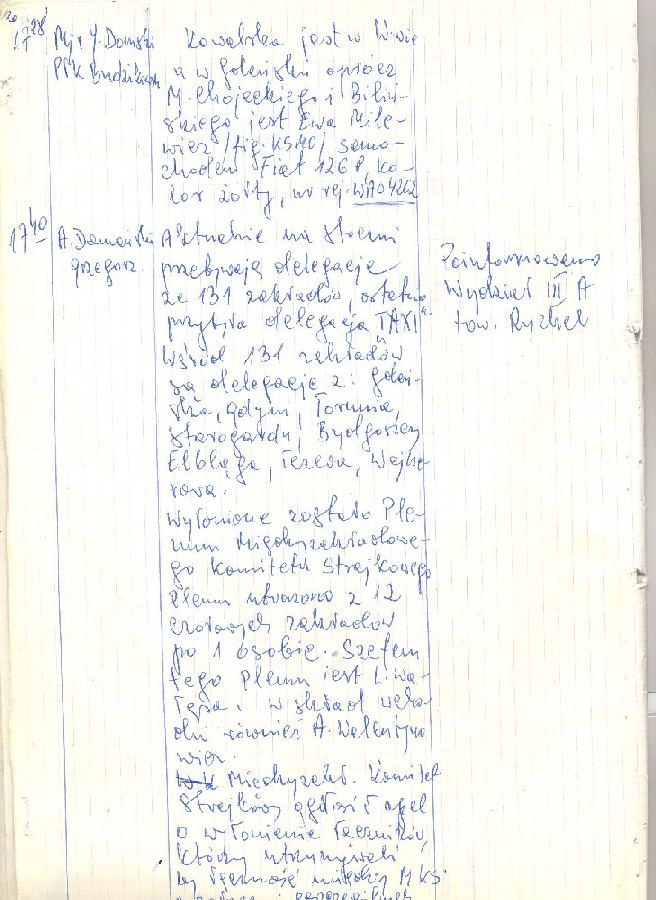 17²⁸ Mjr J. Domski Kowalska jest w W-wie
Ppłk a w Gdańsku oprócz
M. Chojeckiego i Biliń-
skiego jest Ewa Mile-
wicz /fig. KSMO/ samo-
chodem Fiat 126 P, ko-
lor żółty, nr rej.
17⁴⁰ A. Domański Aktualnie na Stoczni
grzegorz. przebywają delegacje
ze 131 zakładów, ostatnio
przybyła delegacja "TAXI".
Wśród 131 zakładów
są delegacje z: Gdań-
ska, Gdyni, Torunia,
Starogardu, Bydgoszczy
Elbląga, Tczewa, Wejhe-
rowa.
Wyłonione zostało Ple-
num Międzyzakładowe-
go Komitetu Strajkowego
Plenum utworzono z 12
czołowych zakładów
po 1 osobie. Szefem
tego Plenum jest L. Wa-
łęsa. W skład wcho-
dzi również A. Walentyno
wicz.
Międzyzakł. Komitet
Strajkowy ogłosił apel
o wyłonienie łączników,
którzy utrzymywali
by łączność między MKS
Poinformowano
Wydział III A
tow. Rychel